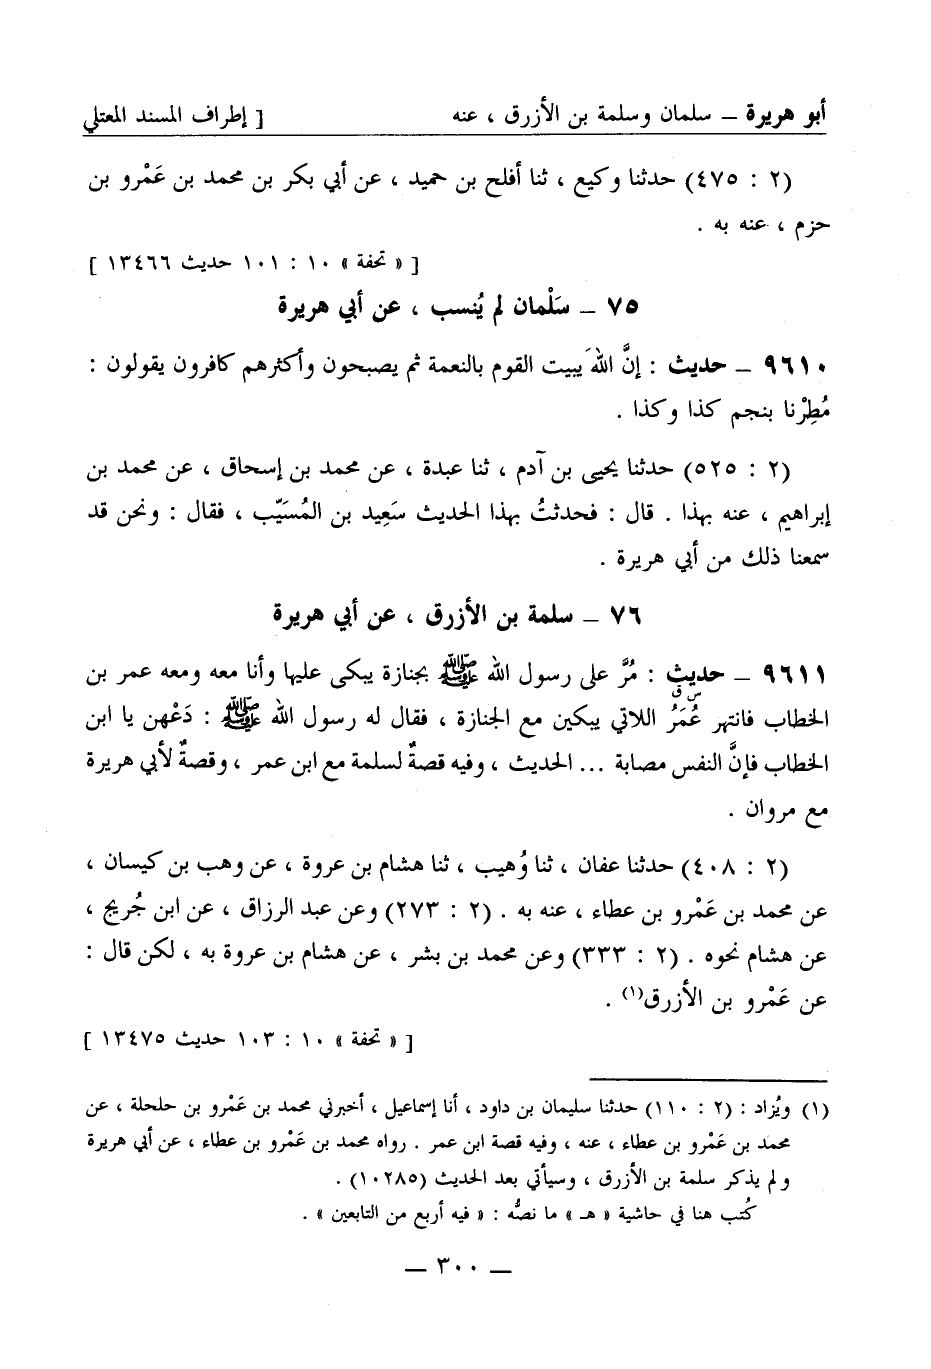 أبو هريرة ــ سلمان وسلمة بن الأزرق ، عنه [ إطراف المسند المعتلي
(٢ : ٤٧٥) حدثنا وكيع ، ثنا أفلح بن حميد ، عن أبي بكر بن محمد بن عَمْرو بن
حزم ، عنه به .
[ « تحفة » ١٠ : ١٠١ حديث ١٣٤٦٦ ]
٧٥ ــ سَلْمان لم يُنسب ، عن أبي هريرة
٩٦١٠ ــ حديث : إنَّ اللهَ يبيت القوم بالنعمة ثم يصبحون وأكثرهم كافرون يقولون :
مُطِرْنا بنجم كذا وكذا .
(٢ : ٥٢٥) حدثنا يحيى بن آدم ، ثنا عبدة ، عن محمد بن إسحاق ، عن محمد بن
إبراهيم ، عنه بهذا . قال : فحدثتُ بهذا الحديث سَعِيد بن المُسَيّب ، فقال : ونحن قد
سمعنا ذلك من أبي هريرة .
٧٦ ــ سلمة بن الأزرق ، عن أبي هريرة
٩٦١١ ــ حديث : مُرَّ على رسول الله ﷺ بجنازة يبكى عليها وأنا معه ومعه عمر بن
س ق
الخطاب فانتهر عُمَرُ اللاتي يبكين مع الجنازة ، فقال له رسول الله ﷺ : دَعْهن يا ابن
الخطاب فإنَّ النفس مصابة ... الحديث ، وفيه قصةٌ لسلمة مع ابن عمر ، وقصةٌ لأبي هريرة
مع مروان .
(٢ : ٤٠٨) حدثنا عفان ، ثنا وُهيب ، ثنا هشام بن عروة ، عن وهب بن كيسان ،
عن محمد بن عَمْرو بن عطاء ، عنه به . (٢ : ٢٧٣) وعن عبد الرزاق ، عن ابن جُريج ،
عن هشام نحوه . (٢ : ٣٣٣) وعن محمد بن بشر ، عن هشام بن عروة به ، لكن قال :
عن عَمْرو بن الأزرق(١) .
[ « تحفة » ١٠ : ١٠٣ حديث ١٣٤٧٥ ]
(١) ويُزاد : (٢ : ١١٠) حدثنا سليمان بن داود ، أنا إسماعيل ، أخبرني محمد بن عَمْرو بن حلحلة ، عن
محمد بن عَمْرو بن عطاء ، عنه ، وفيه قصة ابن عمر . رواه محمد بن عَمْرو بن عطاء ، عن أبي هريرة
ولم يذكر سلمة بن الأزرق ، وسيأتي بعد الحديث (١٠٢٨٥) .
كُتب هنا في حاشية « هـ » ما نصُّه : « فيه أربع من التابعين » .
ــ ٣٠٠ ــ